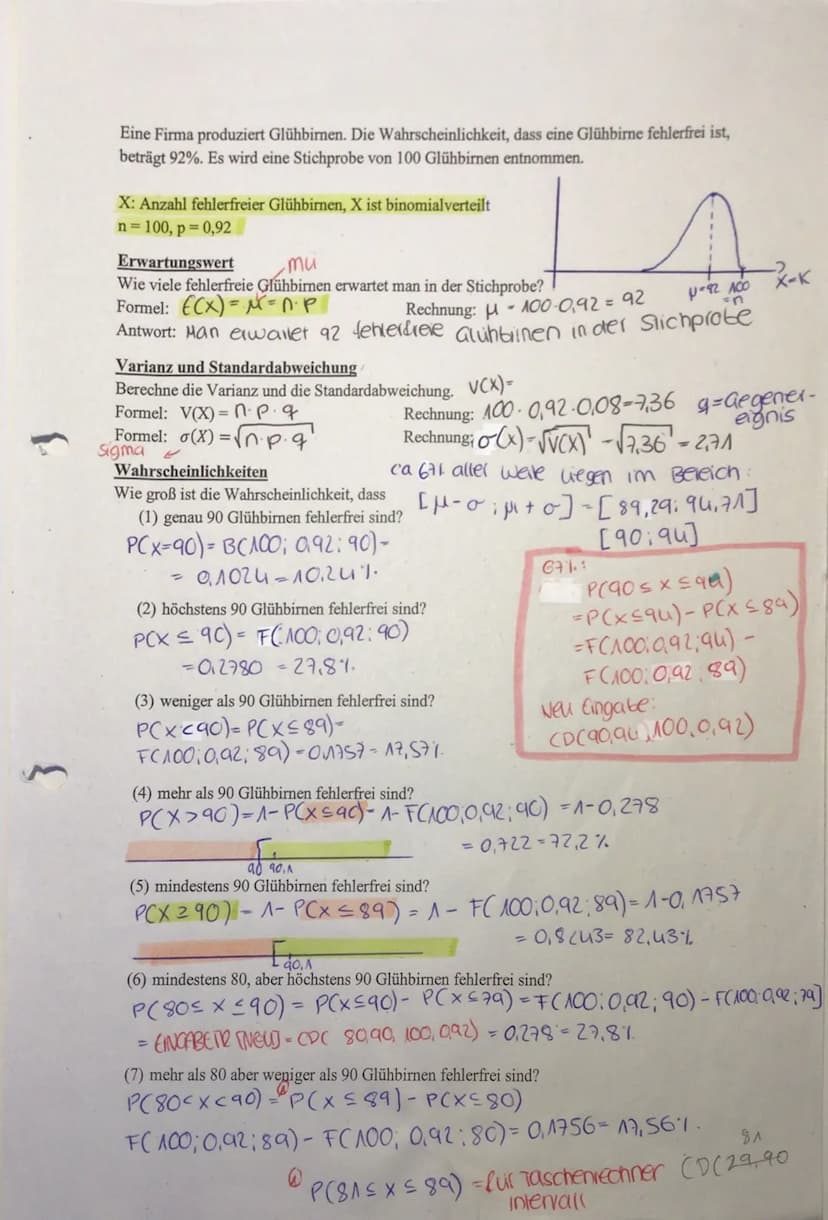 Eine Firma produziert Glühbirnen. Die Wahrscheinlichkeit, dass eine Glühbirne fehlerfrei ist,
beträgt 92%. Es wird eine Stichprobe von 100 Glühbirnen entnommen.
X: Anzahl fehlerfreier Glühbirnen, X ist binomialverteilt
n = 100, p = 0,92
μ=92 100 =n X=K
Erwartungswert
mu
Wie viele fehlerfreie Glühbirnen erwartet man in der Stichprobe?
Formel: E(X) = μ = n·p Rechnung: μ = 100·0,92 = 92
Antwort: Man erwartet 92 fehlerfreie Glühbirnen in der Stichprobe
Varianz und Standardabweichung
Berechne die Varianz und die Standardabweichung. V(X)=
Formel: V(X) = n·p·q Rechnung: 100·0,92·0,08=7,36 q=Gegener-
eignis
Formel: σ(X) = √n·p·q Rechnung: σ(x)=√V(X) = √7,36 = 2,71
sigma
Wahrscheinlichkeiten
ca 67% aller Werte liegen im Bereich:
[μ-σ ; μ+σ] = [89,29; 94,71]
[90;94]
Wie groß ist die Wahrscheinlichkeit, dass
(1) genau 90 Glühbirnen fehlerfrei sind?
P(X=90) = B(100; 0,92; 90) =
= 0,1024 = 10,24%.
67%:
P(90 ≤ X ≤ 94)
=P(X≤94) - P(X ≤ 89)
=F(100;0,92;94) -
F(100;0,92;89)
Neu Eingabe:
CD(90,94,100,0,92)
(2) höchstens 90 Glühbirnen fehlerfrei sind?
P(X ≤ 90) = F(100;0,92;90)
=0,2780 = 27,8%.
(3) weniger als 90 Glühbirnen fehlerfrei sind?
P(X<90) = P(X≤89) =
F(100;0,92;89) = 0,1757 = 17,57%
(4) mehr als 90 Glühbirnen fehlerfrei sind?
P(X>90) = 1- P(X≤90) = 1- F(100,0,92;90) = 1-0,278
= 0,722 = 72,2%
90 90,1
(5) mindestens 90 Glühbirnen fehlerfrei sind?
P(X≥90) = 1- P(X≤89) = 1 - F(100;0,92;89) = 1-0,1757
= 0,8243 = 82,43%
90,1
(6) mindestens 80, aber höchstens 90 Glühbirnen fehlerfrei sind?
P(80≤ X ≤90) = P(X≤90) - P(X≤79) = F(100;0,92;90) - F(100;0,92;79)
= EINGABE TR [NEU] = CD( 80,90, 100, 0,92) = 0,278 = 27,8%.
(7) mehr als 80 aber weniger als 90 Glühbirnen fehlerfrei sind?
P(80<X<90) = P(X ≤ 89) - P(X≤80)
F(100;0,92;89) - F(100; 0,92;80) = 0,1756 = 17,56%.
P(81≤ X ≤ 89) = für Taschenrechner
Intervall
81
CD(29,90